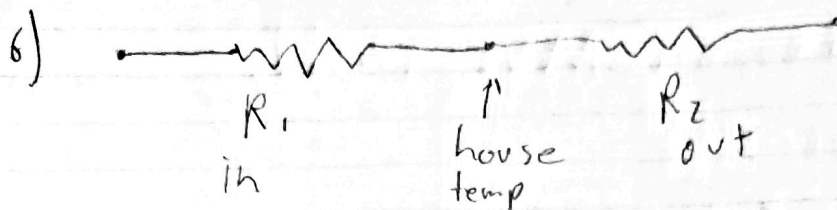 6)
R1
in
house
temp
R2
out